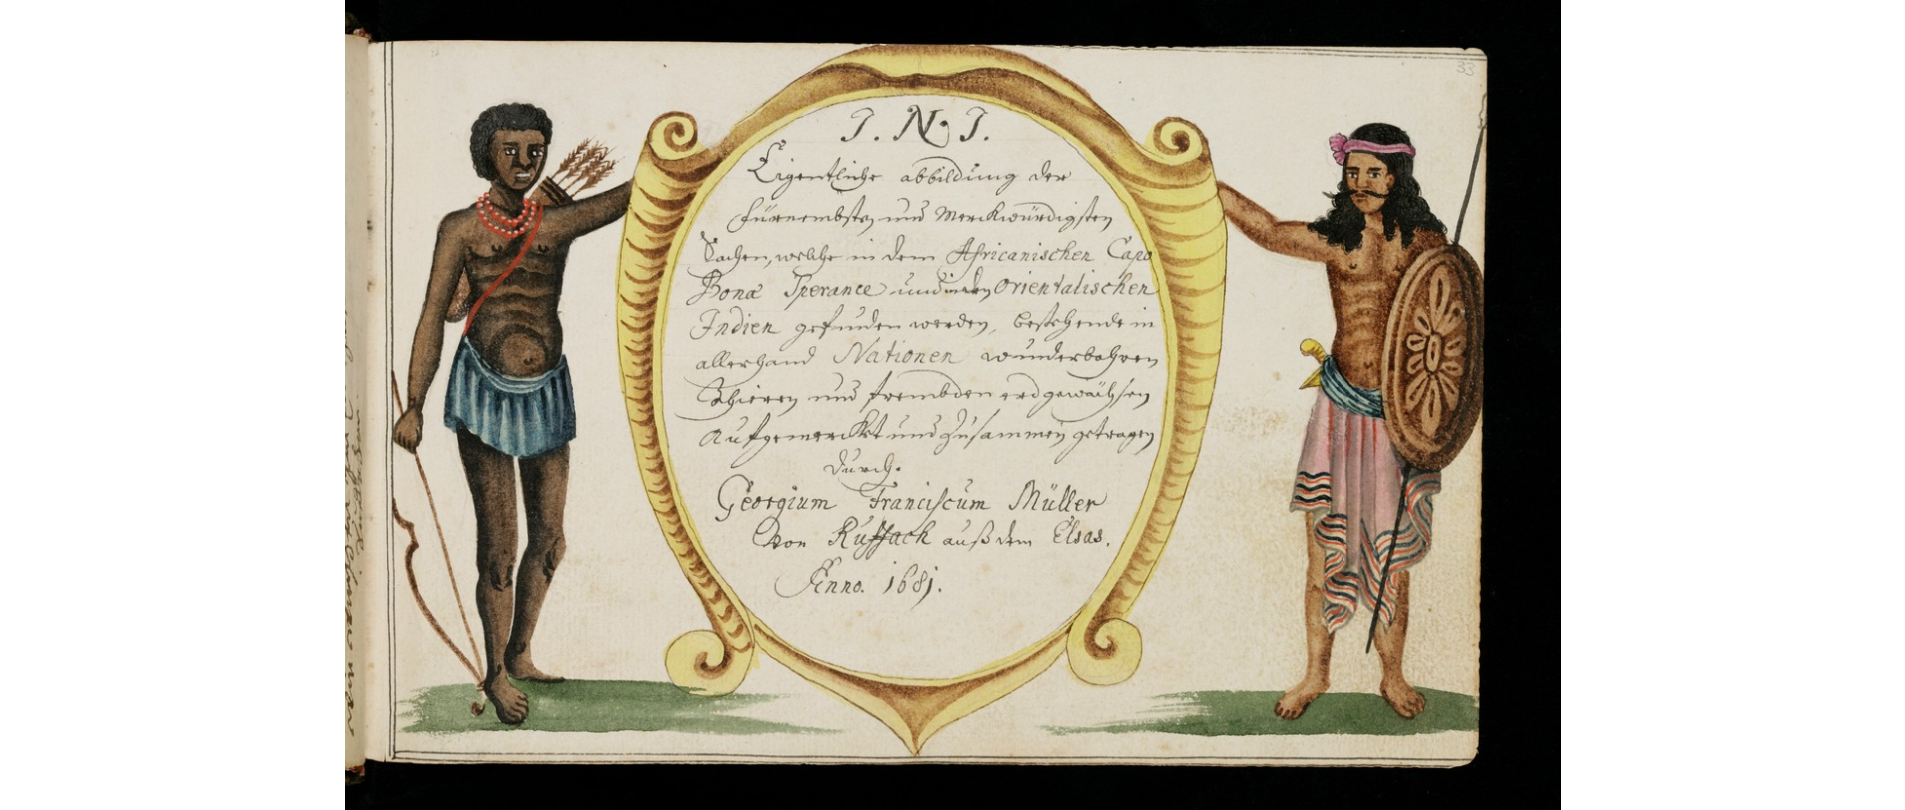 33
J. N. J.
Eigentliche abbildung der
fürnembsten und Merckwürdigsten
Sachen, welche in dem Africanischen Capo
Bonæ Sperance und in den Orientalischen
Indien gefunden werden, bestehende in
allerhand Nationen wunderbahren
Thieren und frembden erdgewächsen
Aufgemercket und Zusammen getragen
durch.
Georgium Franciscum Müller
von Ruffach auß dem Elsas.
Anno. 1681.